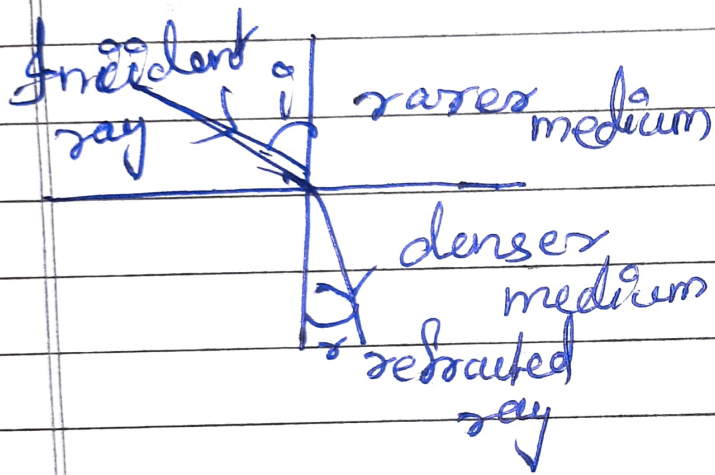 Incident
ray
i
rarer
medium
denser
medium
r
refracted
ray